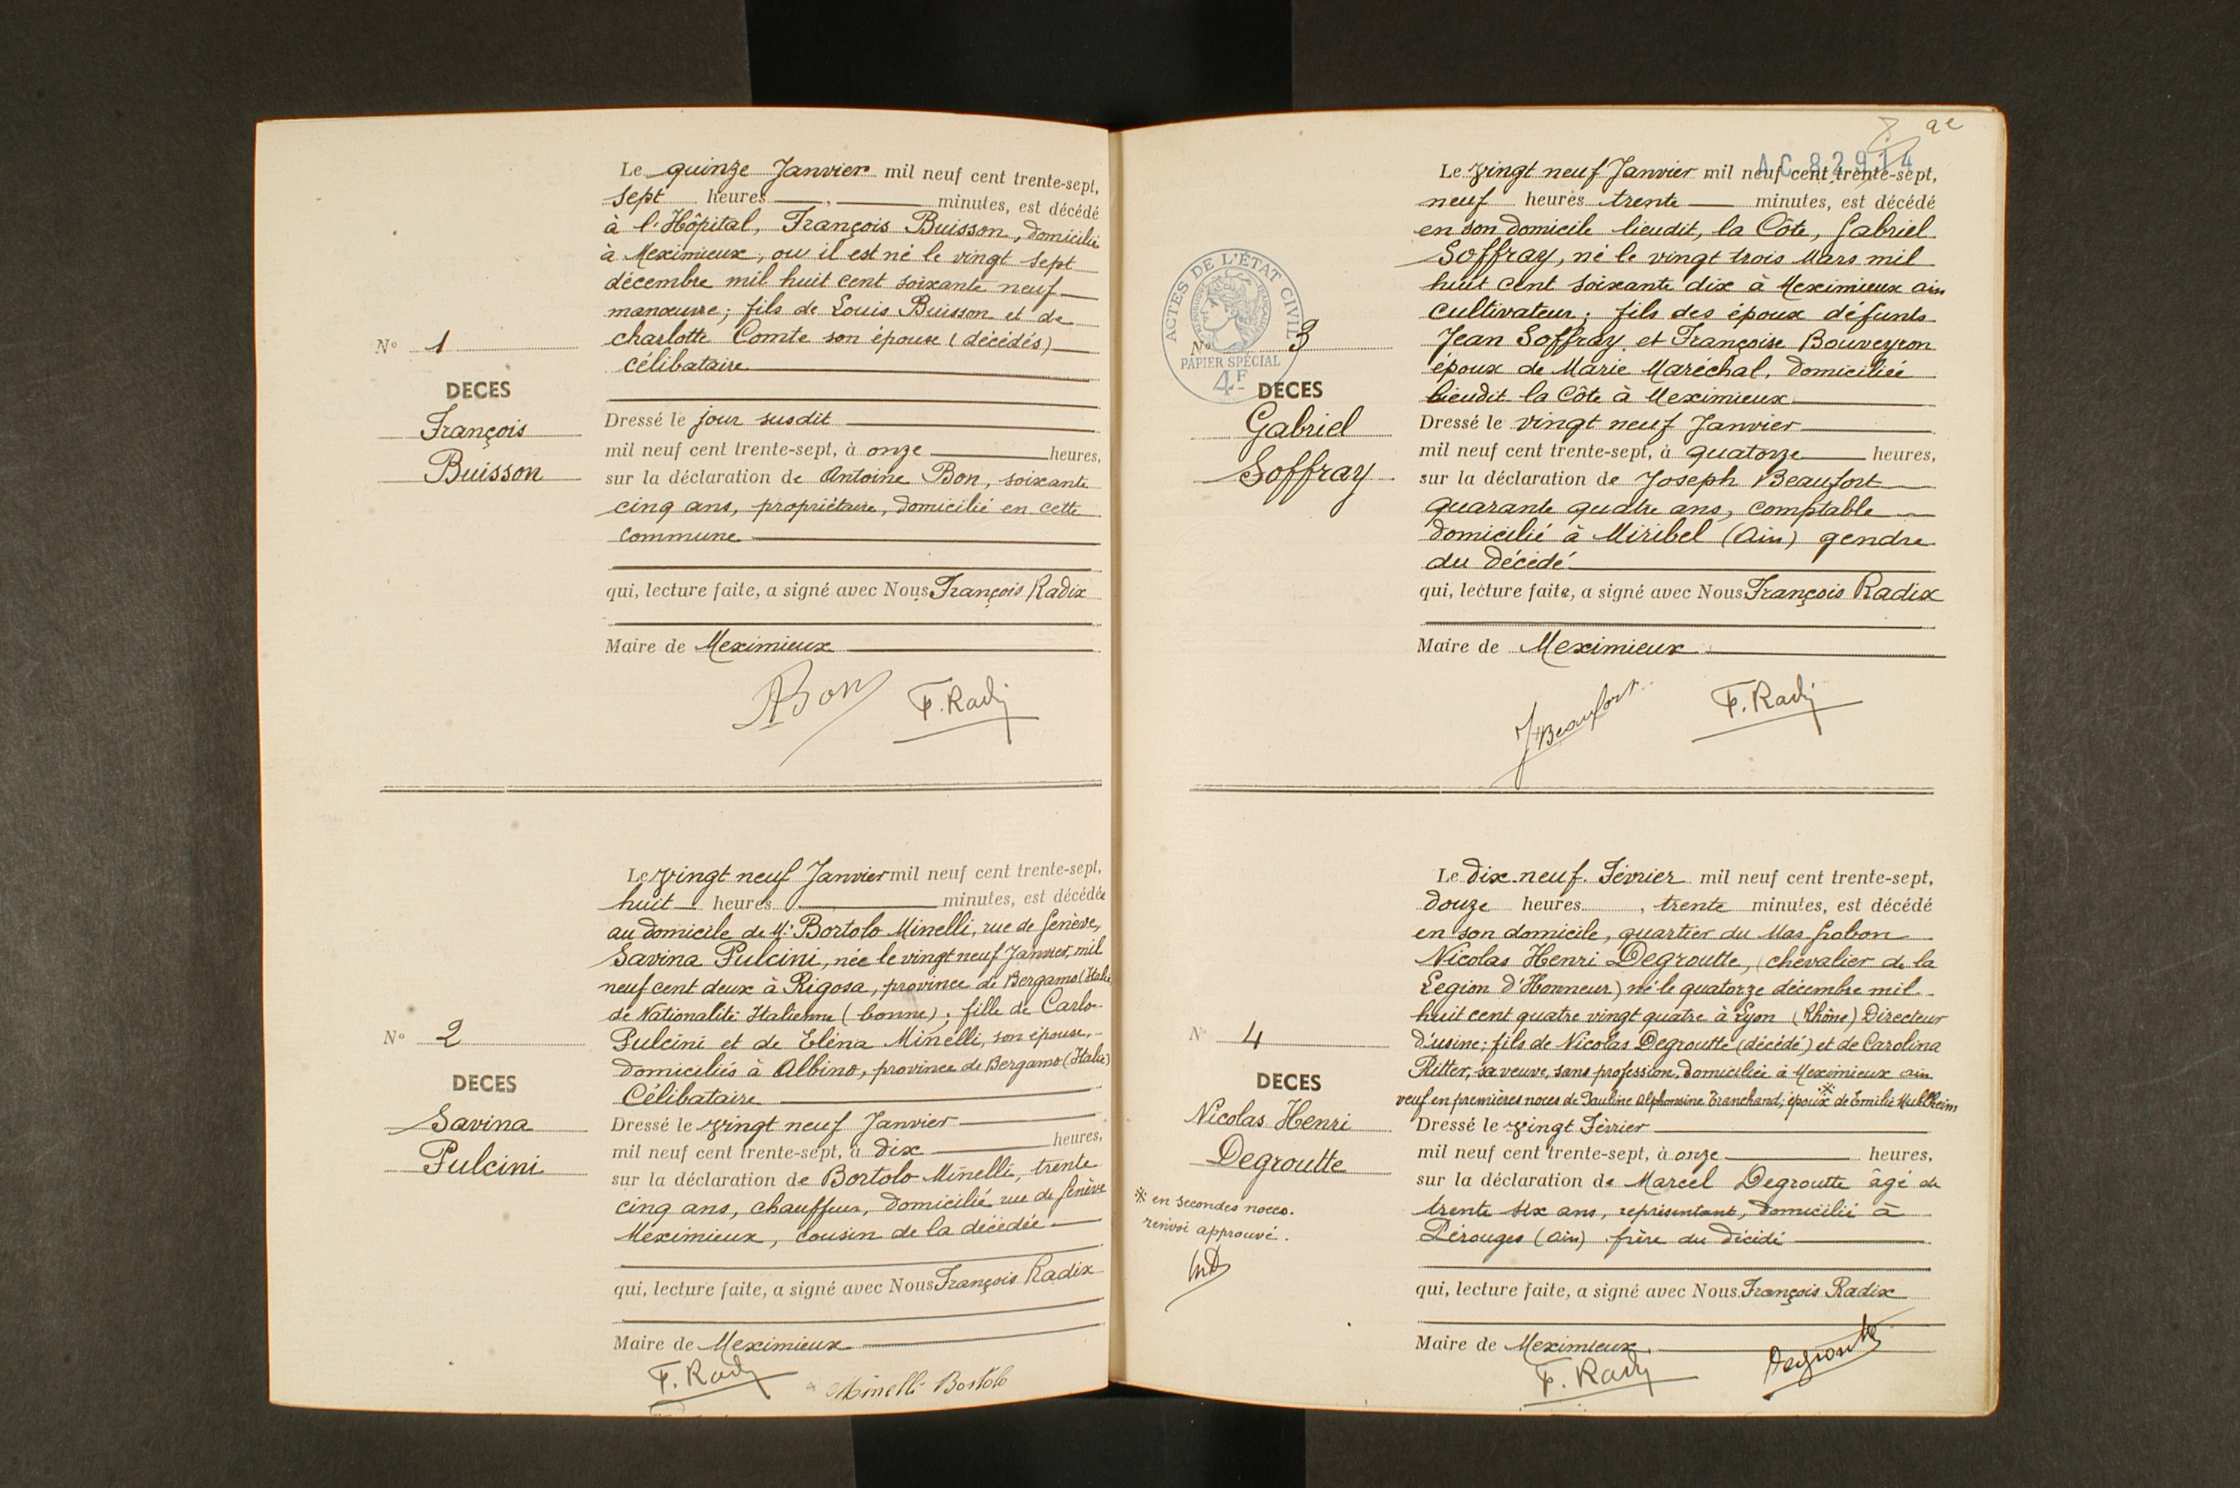 Le quinze Janvier mil neuf cent trente-sept,
sept heures minutes, est décédé
à l'Hôpital, François Buisson, domicilié
à Meximieux, ou il est né le vingt sept
décembre mil huit cent soixante neuf
manœuvre; fils de Louis Buisson et de
charlotte Comte son épouse (décédés)
célibataire
N° 1
DECES
François
Buisson
Dressé le jour susdit
mil neuf cent trente-sept, à onze heures,
sur la déclaration de Antoine Bon, soixante
cinq ans, propriétaire, domicilié en cette
commune
qui, lecture faite, a signé avec Nous François Radix
Maire de Meximieux
ABon F. Radix
Le vingt neuf Janvier mil neuf cent trente-sept,
huit heures minutes, est décédée
au domicile de Mr Bortolo Minelli, rue de Genève,
Savina Pulcini, née le vingt neuf Janvier, mil
neuf cent deux à Rigosa, province de Bergamo (Italie)
de Nationalité Italienne (bonne); fille de Carlo
Pulcini et de Eléna Minelli, son épouse,
domiciliés à Albino, province de Bergamo (Italie)
Célibataire
N° 2
DECES
Savina
Pulcini
Dressé le vingt neuf Janvier
mil neuf cent trente-sept, à dix heures,
sur la déclaration de Bortolo Minelli, trente
cinq ans, chauffeur, domicilié rue de Genève
Meximieux, cousin de la décédée
qui, lecture faite, a signé avec Nous François Radix
Maire de Meximieux
F. Radix Minelli Bortolo
AC 82914
Le vingt neuf Janvier mil neuf cent trente-sept,
neuf heures trente minutes, est décédé
en son domicile lieudit, la Côte, Gabriel
Soffray, né le vingt trois Mars mil
huit cent soixante dix à Meximieux ain
cultivateur; fils des époux défunts
Jean Soffray et Françoise Bouveyron
époux de Marie Maréchal, domiciliée
lieudit la Côte à Meximieux
ACTES DE L'ÉTAT CIVIL
RÉPUBLIQUE FRANÇAISE
PAPIER SPÉCIAL
4F
N° 3
DECES
Gabriel
Soffray
Dressé le vingt neuf Janvier
mil neuf cent trente-sept, à quatorze heures,
sur la déclaration de Joseph Beaufort
quarante quatre ans, comptable
domicilié à Miribel (Ain) gendre
du décédé
qui, lecture faite, a signé avec Nous François Radix
Maire de Meximieux
JBeaufort F. Radix
Le dix-neuf Février mil neuf cent trente-sept,
douze heures, trente minutes, est décédé
en son domicile, quartier du Mas Grobon
Nicolas Henri Degroutte, (chevalier de la
Legion d'Honneur) né le quatorze décembre mil
huit cent quatre vingt quatre à Lyon (Rhône) Directeur
d'usine; fils de Nicolas Degroutte (décédé) et de Carolina
Ritter, sa veuve, sans profession, domiciliée à Meximieux ain
veuf en premières noces de Pauline Alphonsine Tranchand, époux ※ de Emilie Muhlheim
N° 4
DECES
Nicolas Henri
Degroutte
※ en secondes noces.
renvoi approuvé.
Dressé le vingt Février
mil neuf cent trente-sept, à onze heures,
sur la déclaration de Marcel Degroutte âgé de
trente six ans, représentant, domicilié à
Pérouges (Ain) frère du décédé
qui, lecture faite, a signé avec Nous François Radix
Maire de Meximieux
F. Radix Degroutte